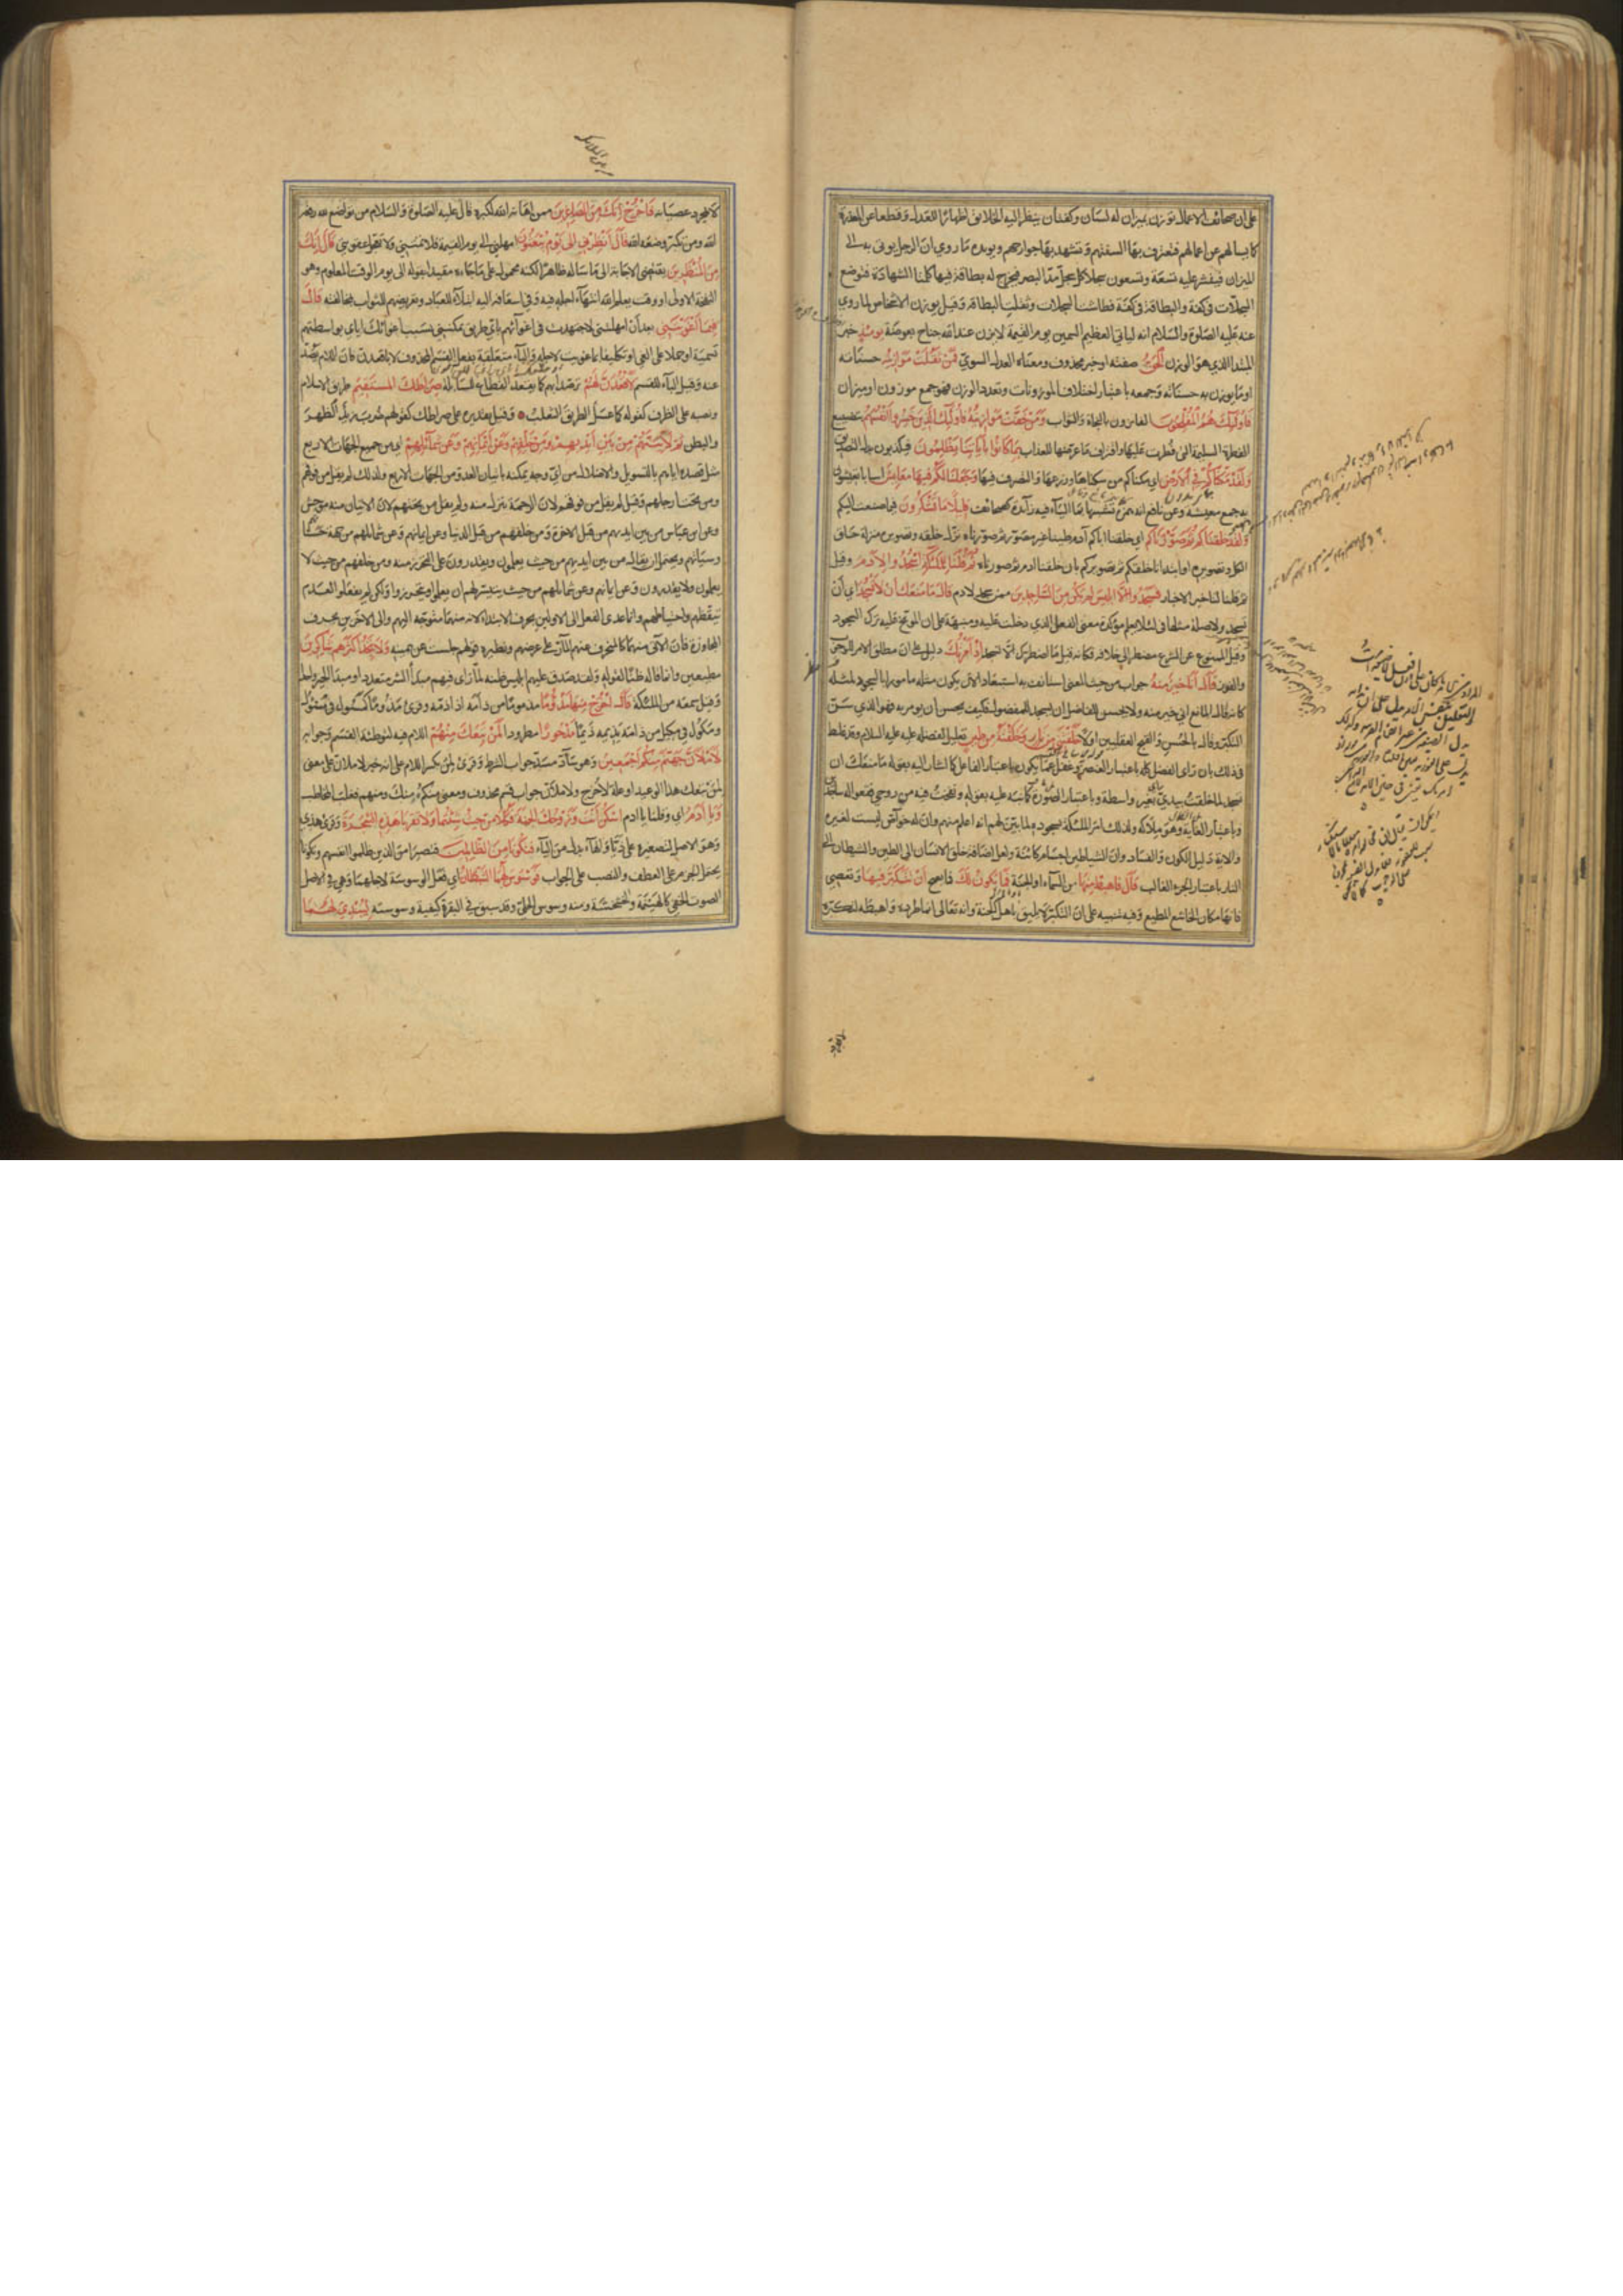 على ان صحائف الاعمال توزن بميزان له لسان وكفتان ينظر اليه الخلايق اظهارا للمعدلة وقطعا عن المعذرة
كما يسالهم عن اعمالهم فتعترف بها السنتهم وتشهد بها جوارحهم ويويده ما روي ان الرجل يوتى به الى
الميزان فينشر عليه تسعة وتسعون سجلا كل سجل مد البصر فيخرج له بطاقة فيها كلمتا الشهادة فتوضع
السجلات في كفة والبطاقة في كفة فطاشت السجلات وثقلت البطاقة وقيل يوزن الاشخاص لما روي
عنه عليه الصلوة والسلام انه لياتي العظيم السمين يوم القيمة لا يزن عند الله جناح بعوضة يومئذ خبر
المبتدا الذي هو الوزن الحق صفته او خبر محذوف ومعناه العدل السوي فمن ثقلت موازينه حسناته
او ما يوزن به حسناته وجمعه باعتبار اختلاف الموزونات وتعدد الوزن فهو جمع موزون او ميزان
فاولئك هم المفلحون الفائزون بالنجاة والثواب ومن خفت موازينه فاولئك الذين خسروا انفسهم بتضييع
الفطرة السليمة التي فطرت عليها واقتراف ما عرضها للعذاب بما كانوا باياتنا يظلمون فيكذبون بدل التصديق
ولقد مكناكم في الارض اي مكناكم من سكناها وزرعها والتصرف فيها وجعلنا لكم فيها معايش اسبابا تعيشون
بها جمع معيشة وعن نافع انه همزه تشبيها بما الياء فيه زائدة كصحائف قليلا ما تشكرون فيما صنعت اليكم
ولقد خلقناكم ثم صورناكم اي خلقنا اباكم آدم طينا غير مصور ثم صورناه نزل خلقه وتصويره منزلة خلق
الكل وتصويره او ابتدانا خلقكم ثم تصويركم بان خلقنا ادم ثم صورناه ثم قلنا للملئكة اسجدوا لادم وقيل
ثم قلنا لتاخير الاخبار فسجدوا الا ابليس لم يكن من الساجدين ممن سجد لادم قال ما منعك ان لا تسجد اي ان
تسجد ولا صلة مثلها في لئلا يعلم مؤكدة معنى الفعل الذي دخلت عليه ومنبهة على ان الموبخ عليه ترك السجود
وقيل الممنوع عن الشيء مضطر الى خلافه فكانه قيل ما اضطرك الى الا تسجد اذ امرتك دليل على ان مطلق الامر للوجوب
والفور قال انا خير منه جواب من حيث المعنى استانف به استبعادا لان يكون مثله مامورا بالسجود لمثله
كانه قال المانع اني خير منه ولا يحسن للفاضل ان يسجد للمفضول فكيف يحسن ان يومر به فهو الذي سن
التكبر وقال بالحسن والقبح العقليين اولا خلقتني من نار وخلقته من طين تعليل لفضله عليه عليه السلام وقد غلط
في ذلك بان راى الفضل كله باعتبار العنصر وغفل عما يكون باعتبار الفاعل كما اشار اليه بقوله ما منعك ان
تسجد لما خلقت بيدي بغير واسطة وباعتبار الصورة كما نبه عليه بقوله ونفخت فيه من روحي فقعوا له ساجدين
وباعتبار الغاية وهو ملاكه ولذلك امر الملئكة بسجوده لما بين لهم انه اعلم منهم وان له خواص ليست لغيره
والاية دليل الكون والفساد وان الشياطين اجسام كائنة ولعل اضافة خلق الانسان الى الطين والشيطان الى
النار باعتبار الجزء الغالب قال فاهبط منها من السماء او الجنة فما يكون لك فما يصح ان تتكبر فيها وتعصي
فانها مكان الخاشع المطيع وفيه تنبيه على ان التكبر لا يليق باهل الجنة وانه تعالى انما طرده واهبطه لتكبره
لا لمجرد عصيانه فاخرج انك من الصاغرين ممن اهانه الله لكبره قال عليه الصلوة والسلام من تواضع لله رفعه
الله ومن تكبر وضعه الله قال انظرني الى يوم يبعثون امهلني الى يوم القيمة فلا تمتني ولا تعجل عقوبتي قال انك
من المنظرين يقتضي الاجابة الى ما ساله ظاهرا لكنه محمول على ما جاء مقيدا بقوله الى يوم الوقت المعلوم وهو
النفخة الاولى او وقت يعلم الله انتهاء اجله فيه وفي اسعافه اليه ابتلاء للعباد وتعريضهم للثواب بمخالفته قال
فبما اغويتني بعد ان امهلتني لاجتهدن في اغوائهم باي طريق يمكنني بسبب اغوائك اياي بواسطتهم
تسمية او حملا على الغي او تكليفا بما غويت لاجله والباء متعلقة بفعل القسم المحذوف لا باقعدن فان اللام تصد
عنه وقيل الباء للقسم لاقعدن لهم ترصدا بهم كما يقعد القطاع للسابلة صراطك المستقيم طريق الاسلام
ونصبه على الظرف كقوله كما عسل الطريق الثعلب وقيل تقديره على صراطك كقولهم ضرب زيد الظهر
والبطن ثم لاتينهم من بين ايديهم ومن خلفهم وعن ايمانهم وعن شمائلهم اي من جميع الجهات الاربع
مثل قصده اياهم بالتسويل والاضلال من اي وجه يمكنه باتيان العدو من الجهات الاربع ولذلك لم يقل من فوقهم
ومن تحت ارجلهم وقيل لم يقل من فوقهم لان الرحمة تنزل منه ولم يقل من تحتهم لان الاتيان منه موحش
وعن ابن عباس من بين ايديهم من قبل الاخرة ومن خلفهم من قبل الدنيا وعن ايمانهم وعن شمائلهم من جهة حسناتهم
وسيآتهم ويحتمل ان يقال من بين ايديهم من حيث يعلمون ويقدرون على التحرز منه ومن خلفهم من حيث لا
يعلمون ولا يقدرون وعن ايمانهم وعن شمائلهم من حيث يتيسر لهم ان يعلموا ويتحرزوا ولكن لم يفعلوا لعدم
تيقظهم واحتياطهم وانما عدى الفعل الى الاولين بحرف الابتداء لانه منهما متوجه اليهم والى الاخرين بحرف
المجاوزة فان الاتي منهما كالمنحرف عنهم المار على عرضهم ونظيره قولهم جلست عن يمينه ولا تجد اكثرهم شاكرين
مطيعين وانما قاله ظنا لقوله ولقد صدق عليهم ابليس ظنه لما راى فيهم مبدأ الشر متعددا ومبدا الخير واحدا
وقيل سمعه من الملئكة قال اخرج منها مذؤما مذموما من ذامه اذا ذمه وقرئ مذوما كمسول في مسئول
ومكول في مكيل من ذامه يذيمه ذيما مدحورا مطرودا لمن تبعك منهم اللام فيه لتوطئة القسم وجوابه
لاملان جهنم منكم اجمعين وهو ساد مسد جواب الشرط وقرئ لمن بكسر اللام على انه خبر لاملان على معنى
لمن تبعك هذا الوعيد او علة لاخرج ولاملان جواب قسم محذوف ومعنى منكم منك ومنهم فغلب المخاطب
ويا ادم اي وقلنا يا ادم اسكن انت وزوجك الجنة فكلا من حيث شئتما ولا تقربا هذه الشجرة وقرئ هذي
وهو الاصل لتصغيره على ذيا والهاء بدل من الياء فتكونا من الظالمين فتصيرا من الذين ظلموا انفسهم وتكونا
يحتمل الجزم على العطف والنصب على الجواب فوسوس لهما الشيطان اي فعل الوسوسة لاجلهما وهي في الاصل
الصوت الخفي كالهينمة والخشخشة ومنه وسوس الحلى وقد سبق في البقرة كيفية وسوسته ليبدي لهما